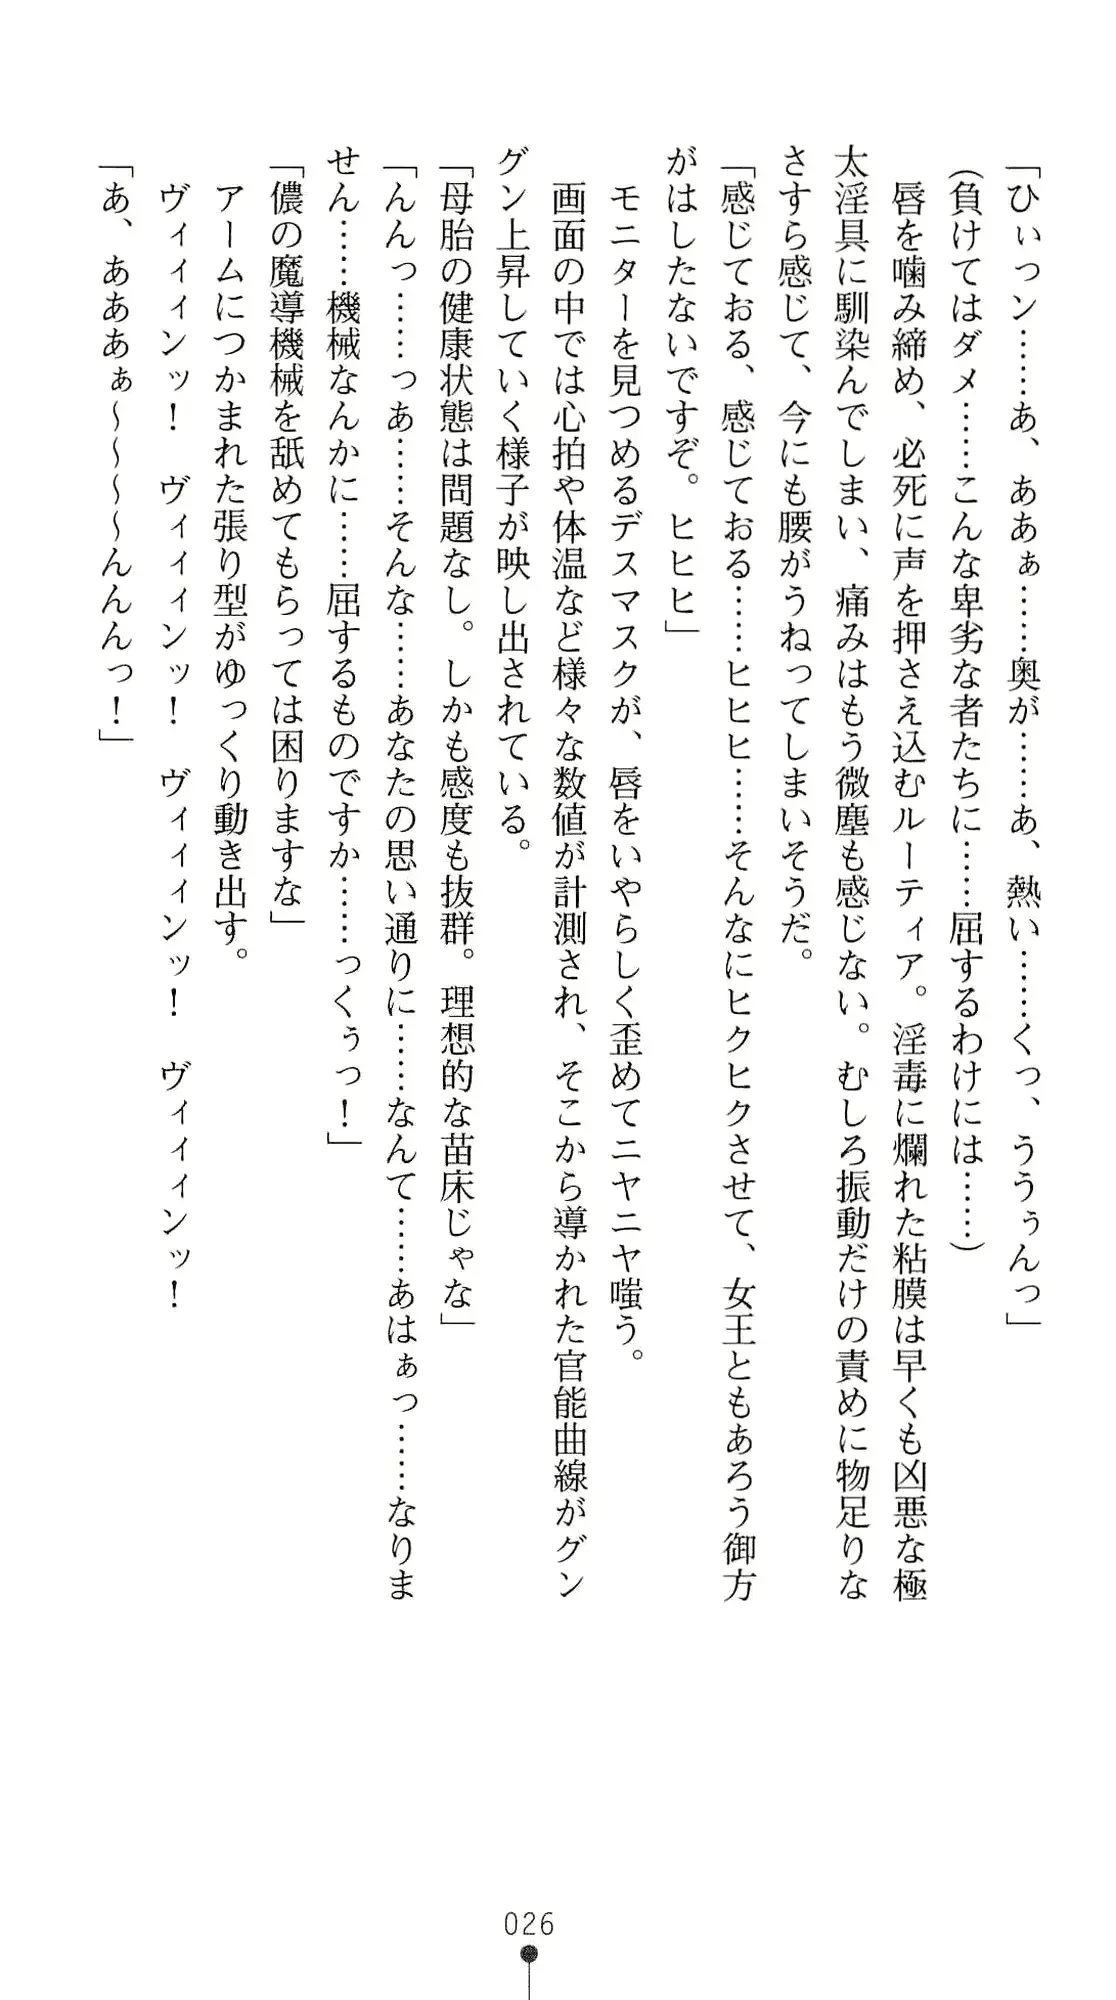 「ひぃっン……あ、ああぁ……奥が……あ、熱い……くっ、ううぅんっ」
(負けてはダメ……こんな卑劣な者たちに……屈するわけには……)
唇を噛み締め、必死に声を押さえ込むルーティア。淫毒に爛れた粘膜は早くも凶悪な極
太淫具に馴染んでしまい、痛みはもう微塵も感じない。むしろ振動だけの責めに物足りな
さすら感じて、今にも腰がうねってしまいそうだ。
「感じておる、感じておる……ヒヒヒ……そんなにヒクヒクさせて、女王ともあろう御方
がはしたないですぞ。ヒヒヒ」
モニターを見つめるデスマスクが、唇をいやらしく歪めてニヤニヤ嗤う。
画面の中では心拍や体温など様々な数値が計測され、そこから導かれた官能曲線がグン
グン上昇していく様子が映し出されている。
「母胎の健康状態は問題なし。しかも感度も抜群。理想的な苗床じゃな」
「んんっ……っあ……そんな……あなたの思い通りに……なんて……あはぁっ……なりま
せん……機械なんかに……屈するものですか……っくぅっ！」
「儂の魔導機械を舐めてもらっては困りますな」
アームにつかまれた張り型がゆっくり動き出す。
ヴィィィンッ！　ヴィィィンッ！　ヴィィィンッ！　ヴィィィンッ！
「あ、あああぁ～～～～んんんっ！」
026